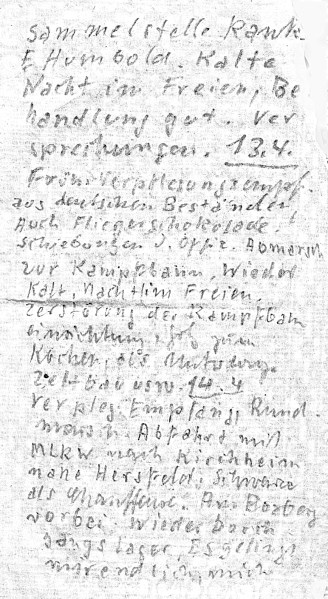 Sammelstelle Rank-
E Humbold. Kalte
Nacht im Freien, Be
handlung gut. Ver
sprechungen. 13.4.
Früh: Verpflegungsempf.
aus deutschen Beständen
Auch Fliegerschokolade!
Schiebungen d. Offiz. Abmarsch
zur Kampfbahn. Wieder
kalt, Nacht im Freien.
Zerstörung der Kampfbahn
einrichtung, Holz zum
Kochen, als Unterlage.
Zeltbau usw. 14.4
Verpfleg. Empfang, Rund-
marsch. Abfahrt mit
MLKW nach Kirchheim
nahe Hersfeld. Schwarze
als Chauffeure. Am Boxberg
vorbei. Wieder Durch
gangslager. Es gelingt
mir endlich, mich